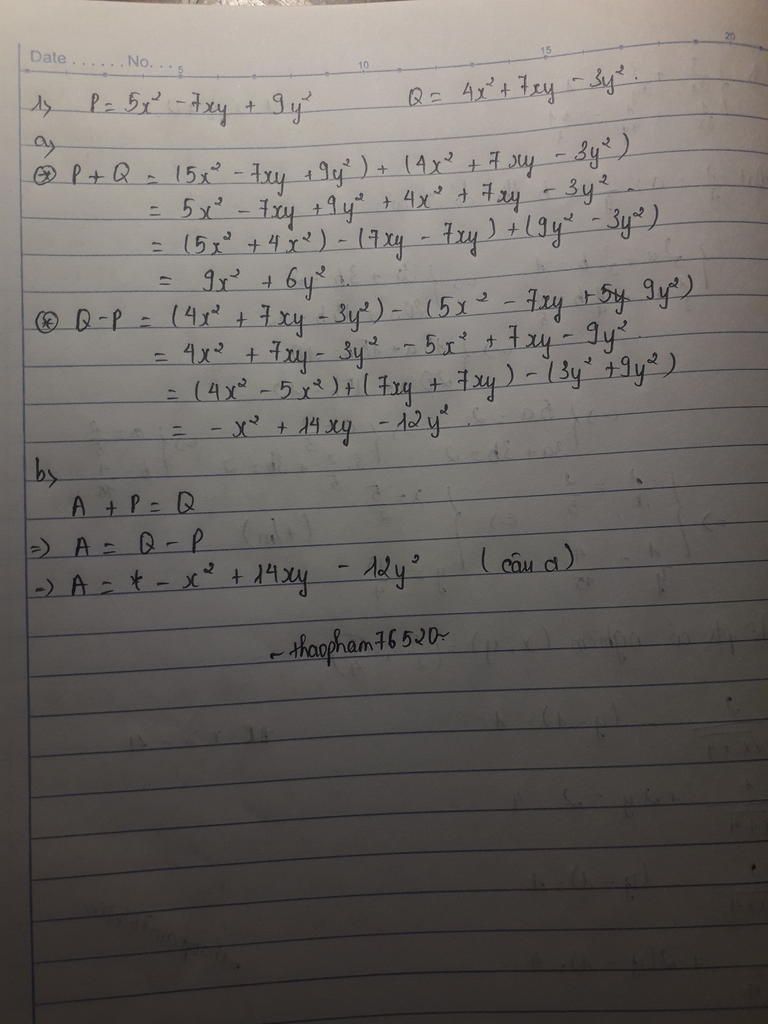 Date ...... No. ... 5 10 15 20
1, P = 5x² - 7xy + 9y² Q = 4x² + 7xy - 3y².
a,
⊛ P + Q = (5x² - 7xy + 9y²) + (4x² + 7xy - 3y²)
= 5x² - 7xy + 9y² + 4x² + 7xy - 3y².
= (5x² + 4x²) - (7xy - 7xy) + (9y² - 3y²)
= 9x² + 6y².
⊛ Q - P = (4x² + 7xy - 3y²) - (5x² - 7xy + 9y²)
= 4x² + 7xy - 3y² - 5x² + 7xy - 9y².
= (4x² - 5x²) + (7xy + 7xy) - (3y² + 9y²)
= - x² + 14xy - 12y².
b,
A + P = Q
=) A = Q - P
=) A = - x² + 14xy - 12y² (câu a)
~ thaopham76520~